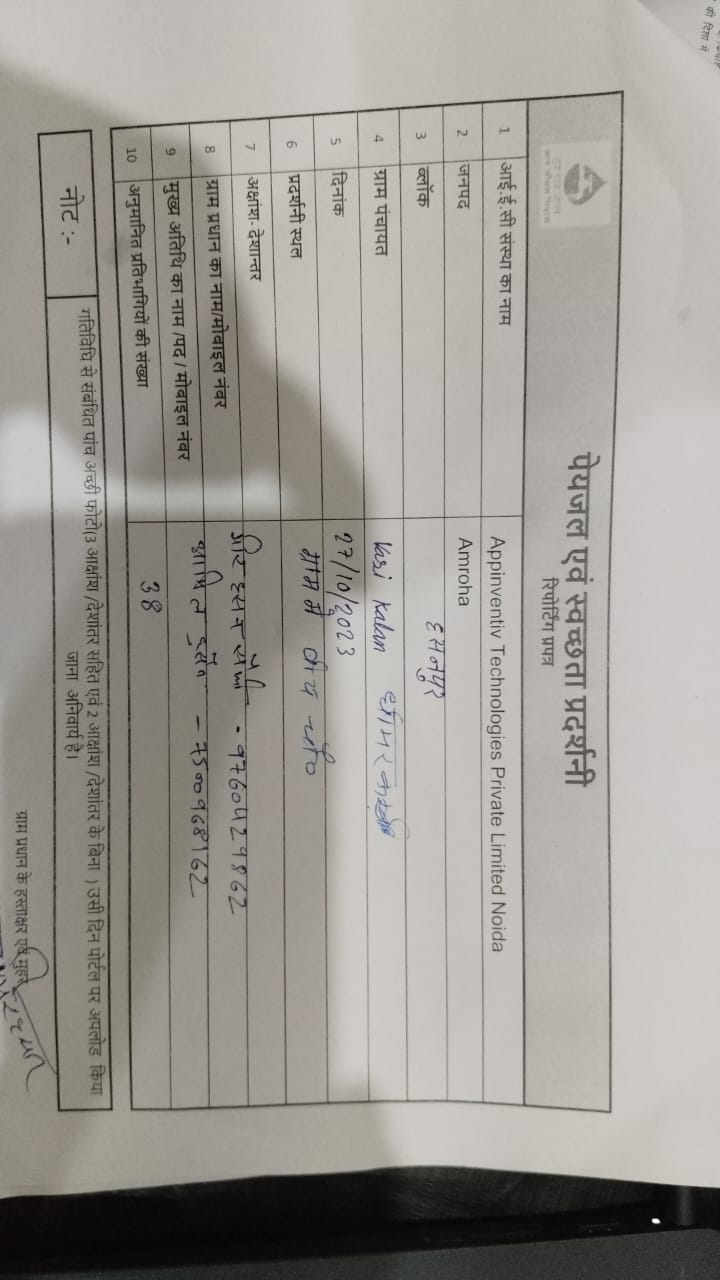 की दिशा में
पेयजल एवं स्वच्छता प्रदर्शनी
रिपोर्टिंग प्रपत्र
1 आई.ई.सी संस्था का नाम Appinventiv Technologies Private Limited Noida
2 जनपद Amroha
3 ब्लॉक हसनपुर
4 ग्राम पंचायत kalan
5 दिनांक 27/10/2023
6 प्रदर्शनी स्थल ग्राम में
7 अक्षांश- देशान्तर
8 ग्राम प्रधान का नाम/मोबाइल नंबर - 9760429862
9 मुख्य अतिथि का नाम /पद / मोबाइल नंबर - 7500968162
10 अनुमानित प्रतिभागियों की संख्या 38
नोट :- गतिविधि से संबंधित पांच अच्छी फोटो(3 आक्षांश /देशांतर सहित एवं 2 आक्षांश /देशांतर के बिना ) उसी दिन पोर्टल पर अपलोड किया
जाना अनिवार्य है।
ग्राम प्रधान के हस्ताक्षर एवं मुहर